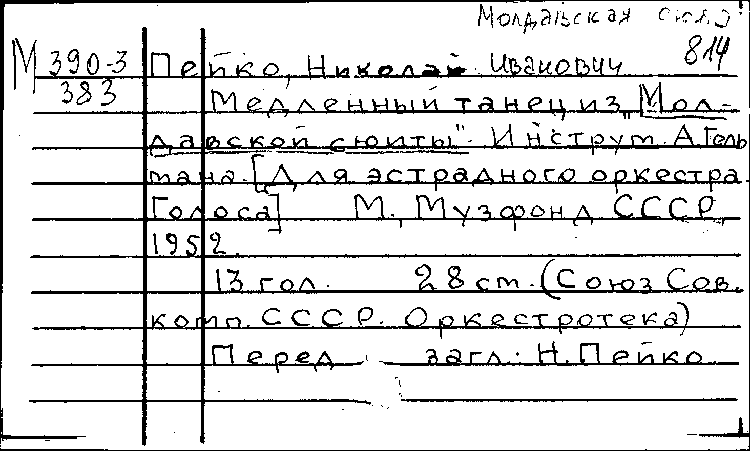 Молдавская сюита
814
М 390-3
383
Пейко, Николай Иванович
Медленный танец из „Мол-
давской сюиты". Инструм. А. Гель
мана. [Для эстрадного оркестра.
Голоса] М., Музфонд СССР,
1952.
13 гол. 28 см. (Союз Сов.
комп. СССР. Оркестротека)
Перед загл.: Н. Пейко